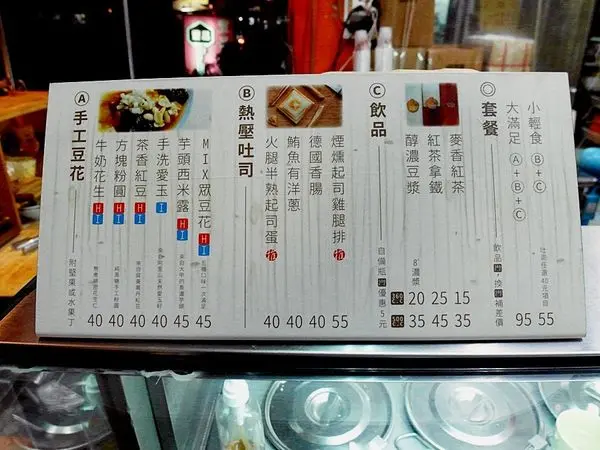 Ⓐ 手工豆花
牛奶花生 H I 40
方塊粉圓 H I 40
茶香紅豆 H I 40
手洗愛玉 I 40
芋頭西米露 H I 45
MIX眾豆花 H I 45
附堅果或水果丁
Ⓑ 熱壓吐司
火腿半熟起司蛋 40
鮪魚有洋蔥 40
德國香腸 40
煙燻起司雞腿排 55
Ⓒ 飲品
自備瓶 優惠5元
360 c.c. 500 c.c.
醇濃豆漿 8°濃漿 20 35
紅茶拿鐵 25 45
麥香紅茶 15 35
◎ 套餐
大滿足 Ⓐ+Ⓑ+Ⓒ 95
小輕食 Ⓑ+Ⓒ 55
吐司任選40元項目